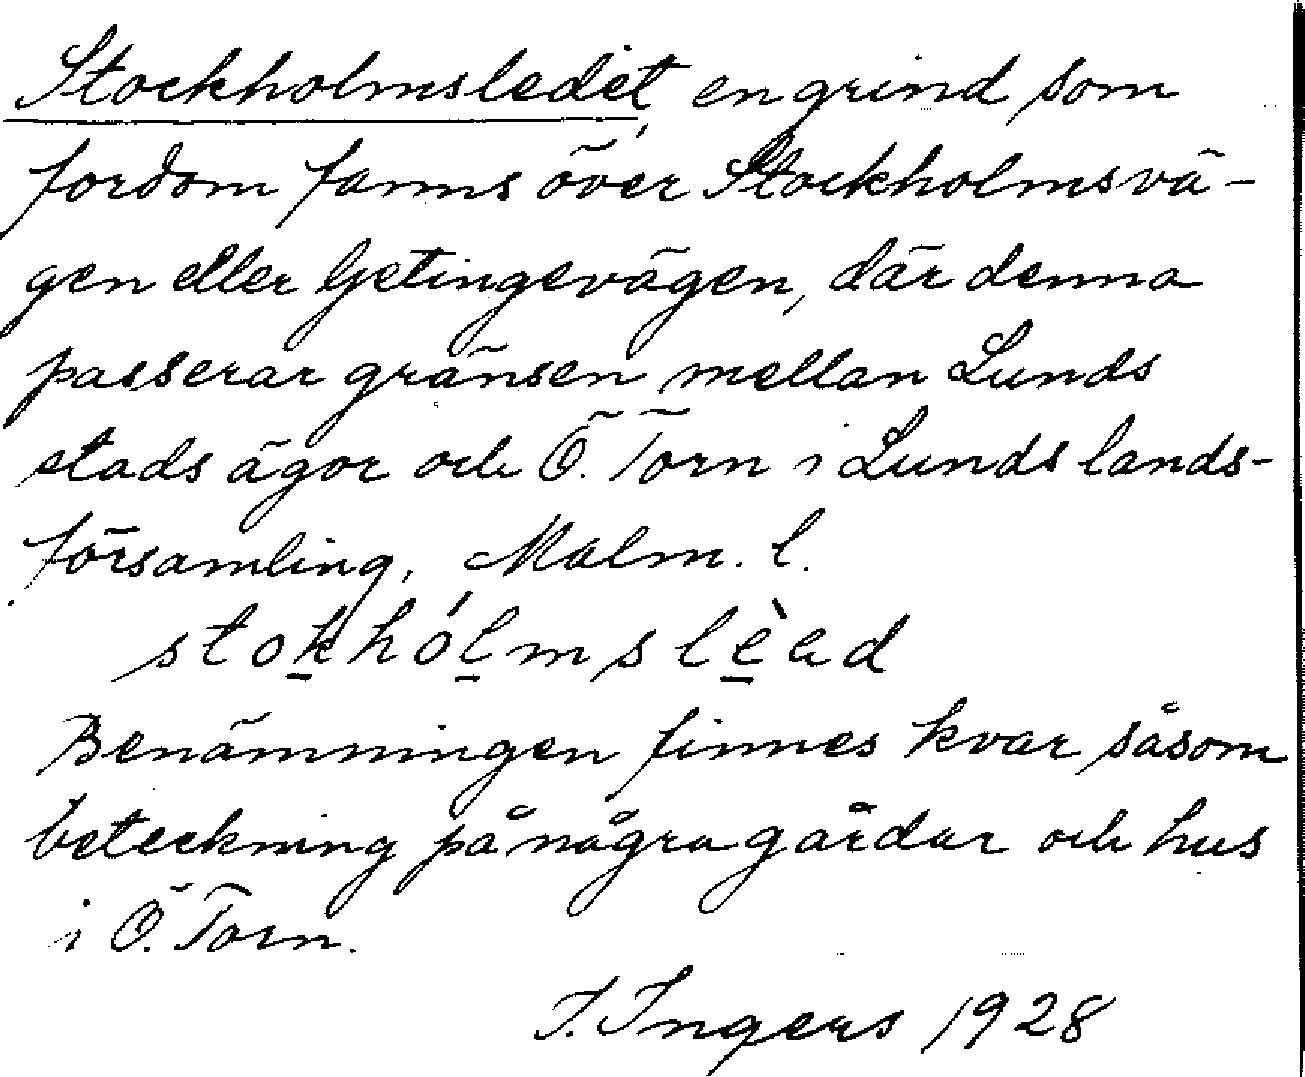 Stockholmsledet, en grind som
fordom fanns över Stockholmsvä-
gen eller Getingevägen, där denna
passerar gränsen mellan Lunds
stads ägor och Ö. Torn i Lunds lands-
församling, Malm. l.
stokhólmslèad
Benämningen finnes kvar såsom
beteckning på några gårdar och hus
i Ö. Torn.
I. Ingers 1928